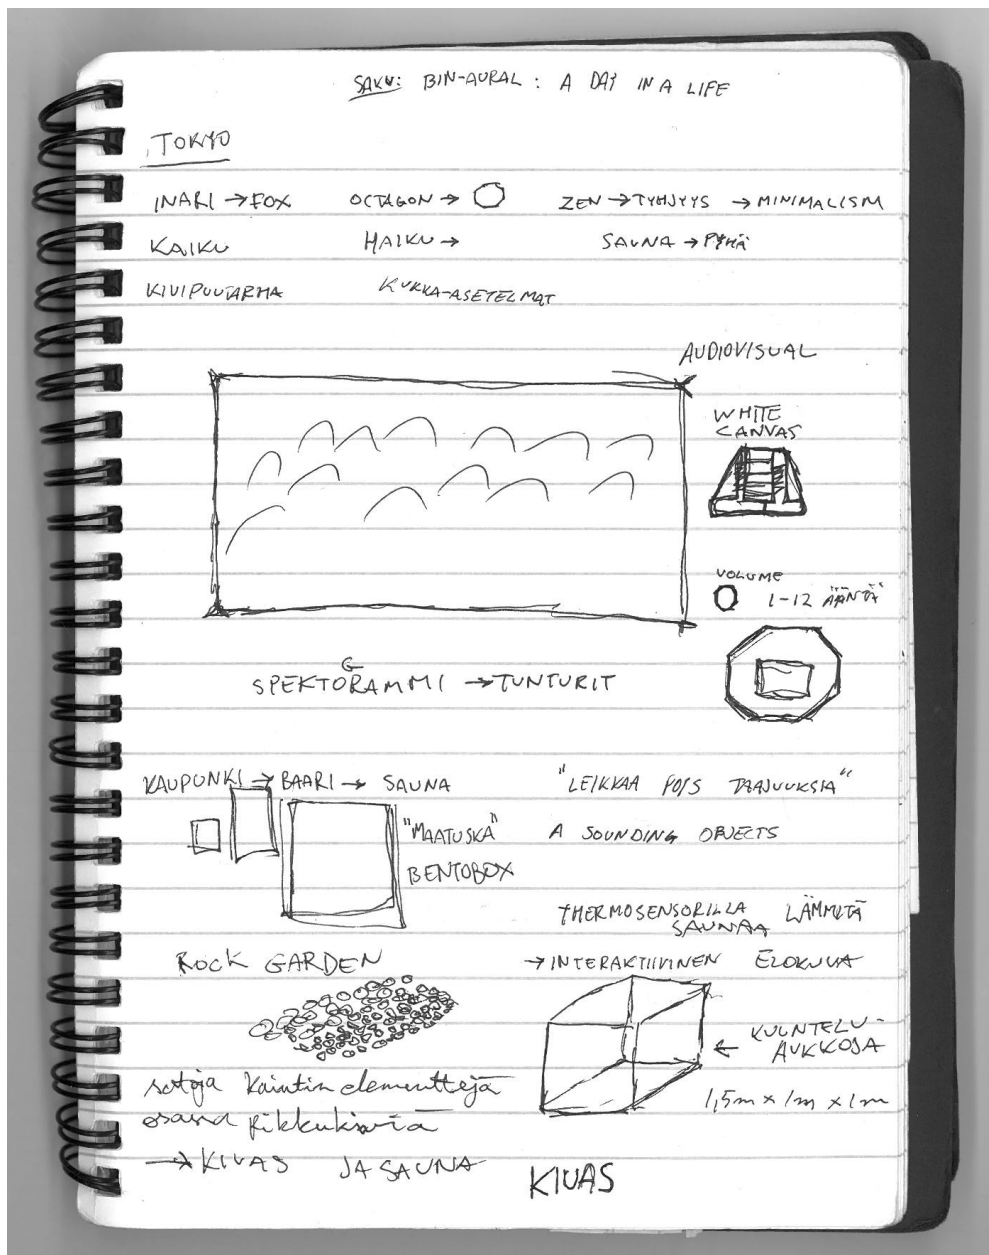 SAKU: BIN-AURAL: A DAY IN A LIFE
TOKYO
INARI → FOX OCTAGON → ZEN → TYHJYYS → MINIMALISM
KAIKU HAIKU → SAUNA → PYHÄ
KIVIPUUTARHA KUKKA-ASETELMAT
AUDIOVISUAL
WHITE
CANVAS
VOLUME
1-12 "ÄÄNTÄ"
G
SPEKTORAMMI → TUNTURIT
KAUPUNKI → BAARI → SAUNA
"LEIKKAA POIS TAAJUUKSIA"
"MAATUSKA"
BENTOBOX
A SOUNDING OBJECTS
THERMOSENSORILLA LÄMMITÄ
SAUNAA
→ INTERAKTIIVINEN ELOKUVA
ROCK GARDEN
← KUUNTELU-
AUKKOJA
1,5m x 1m x 1m
elementtejä
osana pikkukiviä
→ KIUAS JA SAUNA
KIUAS